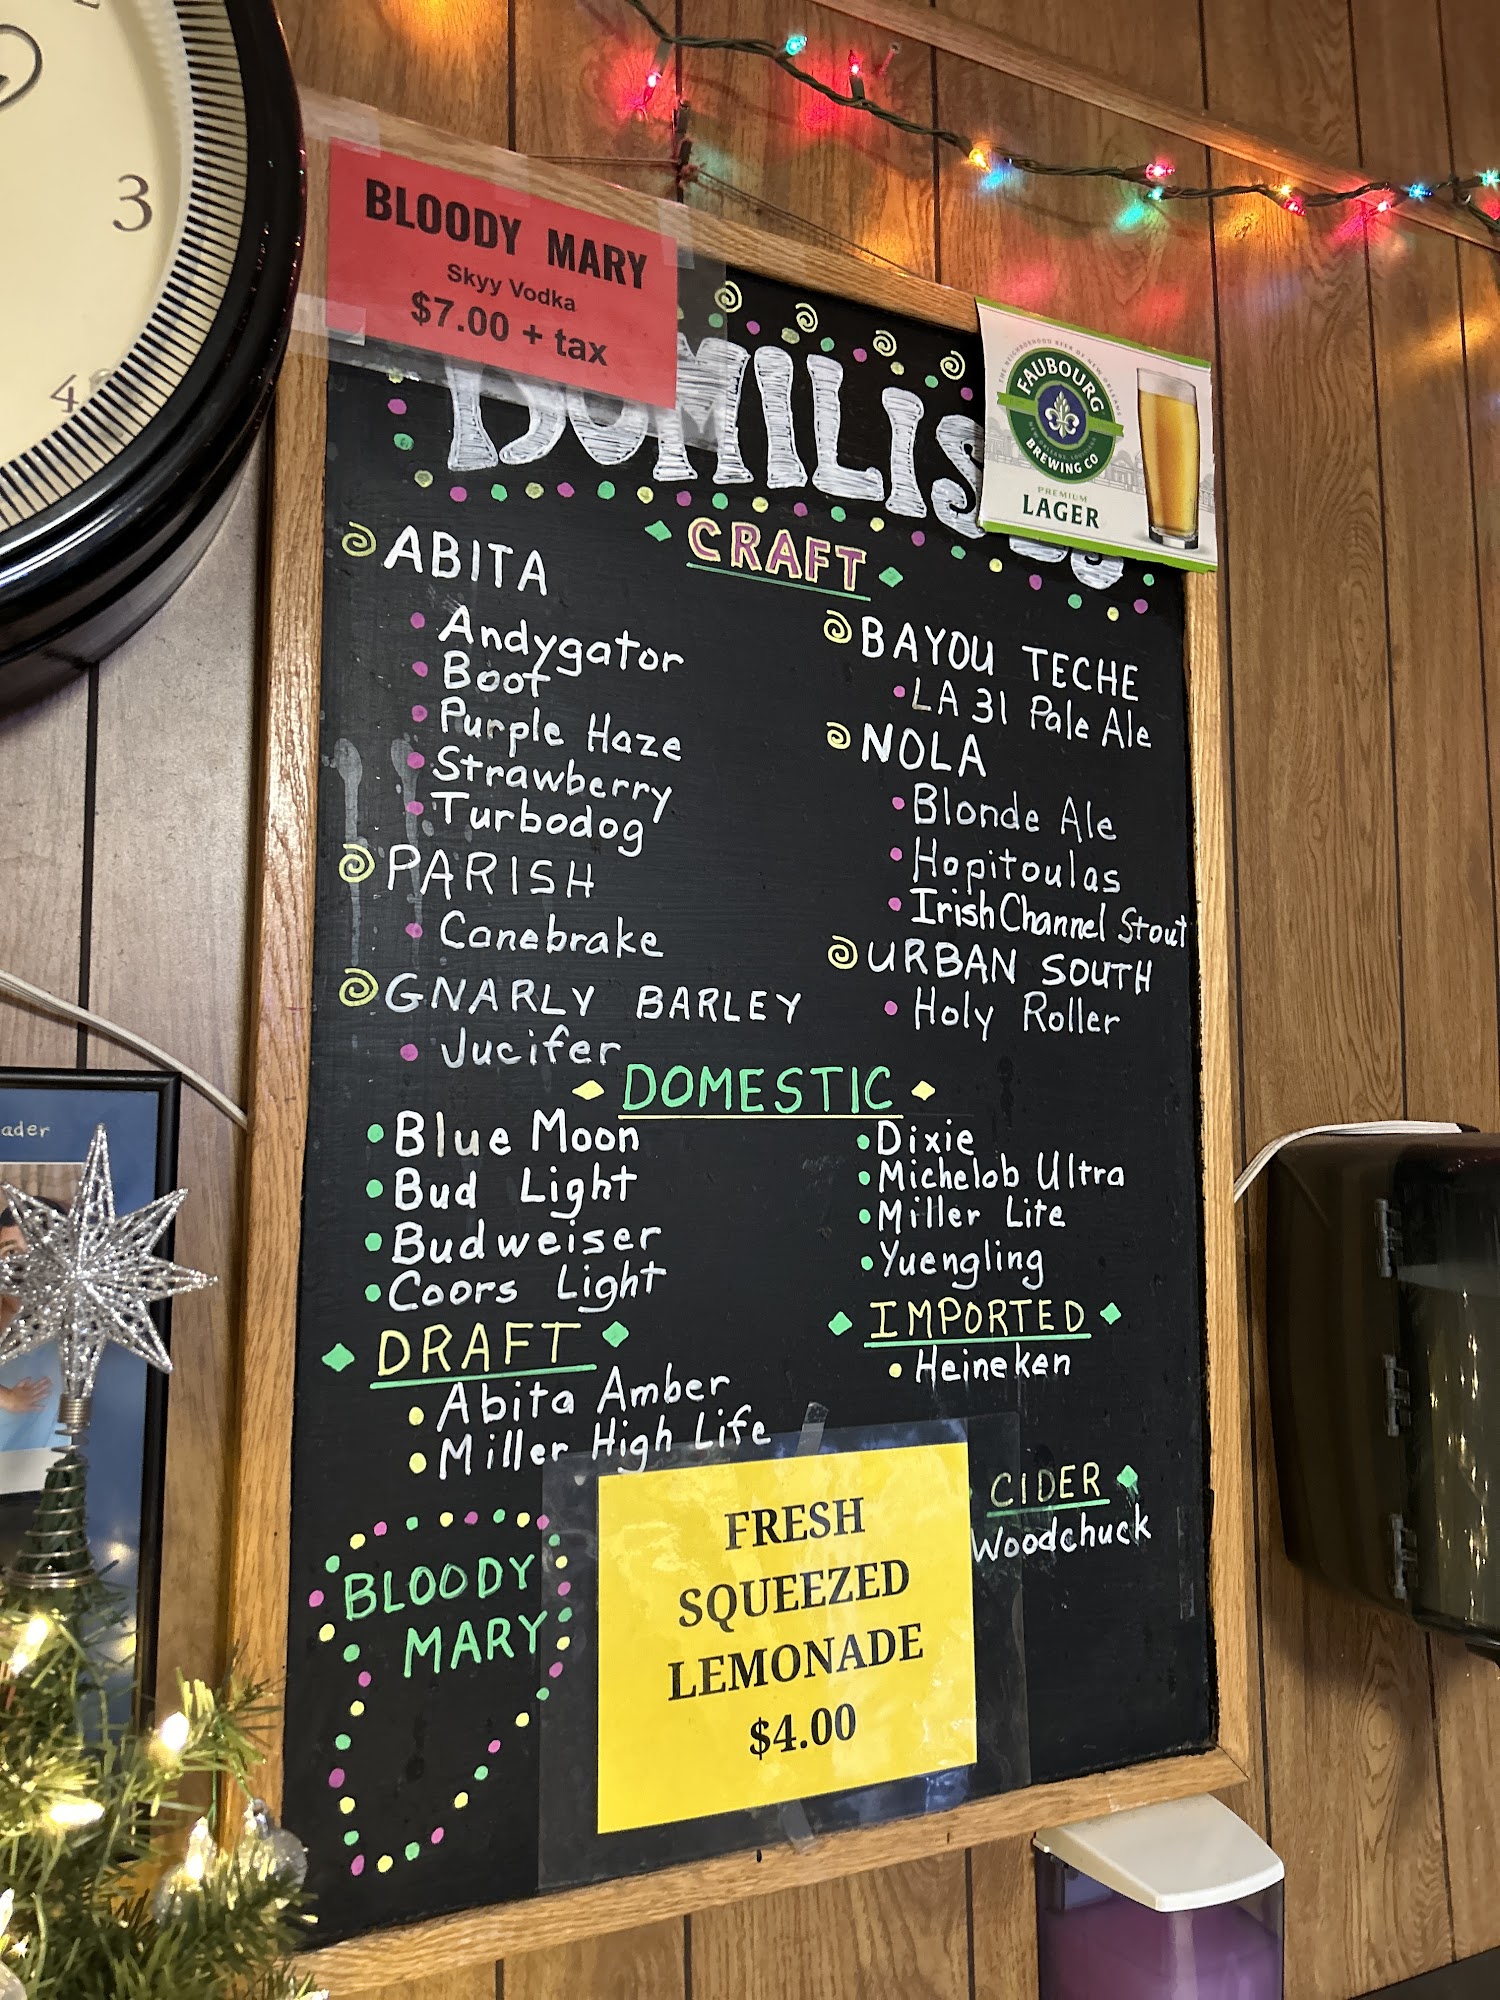 3
4
BLOODY MARY
Skyy Vodka
$7.00 + tax
DOMILISE'S
THE NEIGHBORHOOD BEER OF NEW ORLEANS
FAUBOURG
NEW ORLEANS, LOUISIANA
BREWING CO
PREMIUM
LAGER
CRAFT
ABITA
Andygator
Boot
Purple Haze
Strawberry
Turbodog
PARISH
Canebrake
GNARLY BARLEY
Jucifer
BAYOU TECHE
LA 31 Pale Ale
NOLA
Blonde Ale
Hopitoulas
Irish Channel Stout
URBAN SOUTH
Holy Roller
DOMESTIC
Blue Moon
Bud Light
Budweiser
Coors Light
Dixie
Michelob Ultra
Miller Lite
Yuengling
DRAFT
Abita Amber
Miller High Life
IMPORTED
Heineken
CIDER
Woodchuck
BLOODY
MARY
FRESH
SQUEEZED
LEMONADE
$4.00
ader